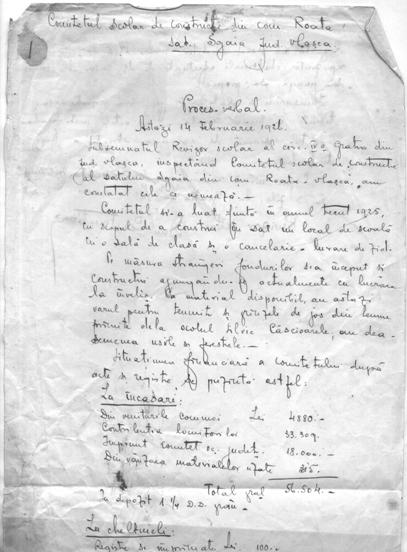 1
Comitetul școlar de construcție din com. Roata
sat. Sgaia jud. Vlașca.
Proces-verbal.
Astăzi 14 Februarie 192
Subsemnatul Revizor școlar al circ. din
jud. Vlașca, inspectând Comitetul școlar de construcție
al satului Sgaia din com. Roata-Vlașca, am
constatat cele ce urmează.-
Comitetul s'a luat ființă în anul trecut 1925,
cu scopul de a construi în sat un local de școală
cu o sală de clasă și o cancelarie - lucrare de zid.
Pe măsura strângerei fondurilor s-a început și
construcția ajungându-se actualmente cu lucrarea
la învelit. Ca material disponibil, au astăzi
varul pentru tencuit și grinzile de jos din lemne
primite dela ocolul silvic Căscioarele, au dea-
semenea ușile și ferestrele.-
Situațiunea financiară a comitetului după
acte și registre, se prezintă astfel:
La încasări:
Din veniturile comunei Lei 4880.-
Contribuția locuitorilor 33.309.
Împrumut comitet șc. județ. 18.000.-
Din vânzarea materialelor uzate 315.
Total gral 56.504.-
În depozit
La cheltueli:
Registre și imprimate Lei 100.-